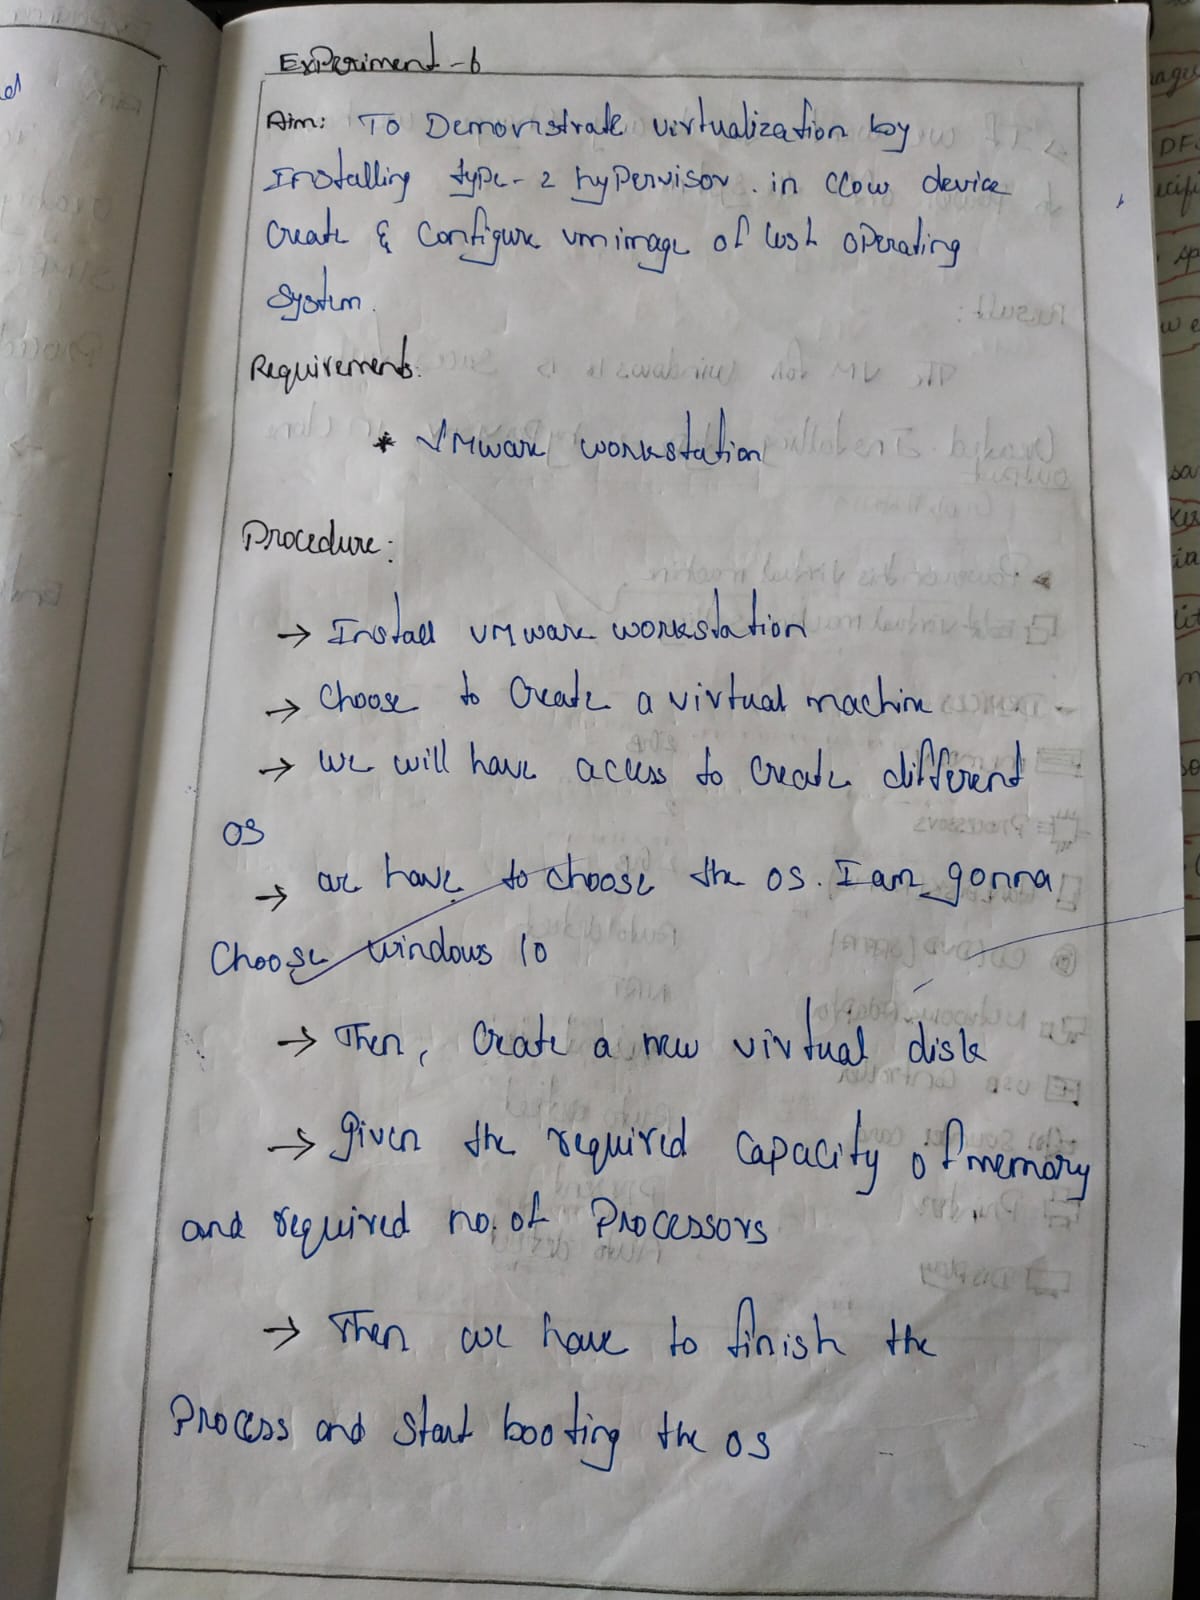 Experiment - 6
Aim: To Demonstrate virtualization by
Installing type-2 hypervisor. in device
Create & Configure vm image of operating
System.
Requirements:
* VMware workstation
Procedure:
→ Install VMware workstation
→ Choose to Create a virtual machine
→ we will have access to create different
OS
→ we have to choose the OS. I am gonna
Choose windows 10
→ Then, Create a new virtual disk
→ Given the required capacity of memory
and required no. of Processors
→ Then we have to finish the
Process and Start booting the OS